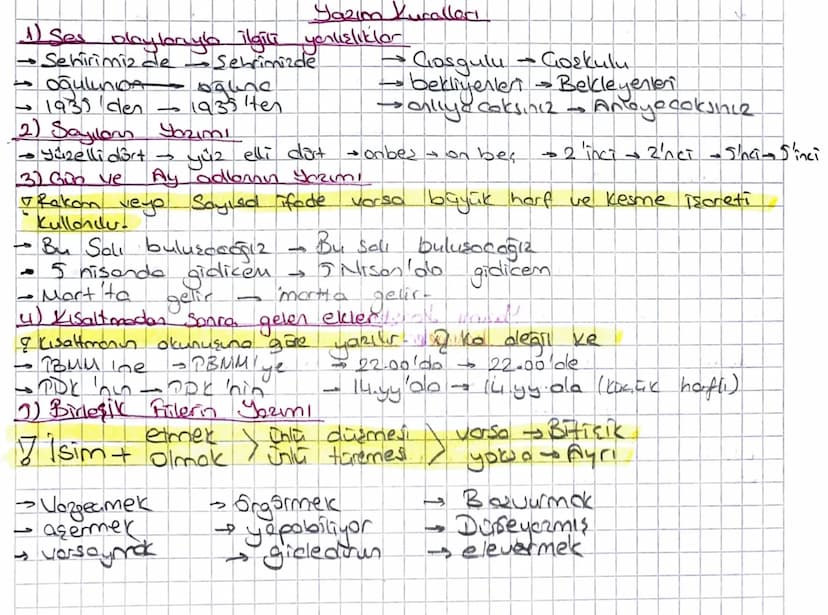 Yazım Kuralları
1) Ses olaylarıyla ilgili yanlışlıklar
→ Şehirimizde → Şehrimizde → Coşgulu → Coşkulu
→ oğuluna → oğluna → bekliyenleri → Bekleyenleri
→ 1935'den → 1935'ten → anlıyacaksınız → Anlayacaksınız
2) Sayıların Yazımı
→ yüzellidört → yüz elli dört → onbeş → on beş → 2'inci → 2'nci → 5'nci → 5'inci
3) Gün ve Ay adlarının Yazımı
Rakam veya Sayısal ifade varsa büyük harf ve kesme işareti
kullanılır.
→ Bu Salı buluşacağız → Bu salı buluşacağız
→ 5 nisanda gidicem → 5 Nisan'da gidicem
→ Mart'ta gelir → martta gelir.
4) Kısaltmadan sonra gelen ekler
Kısaltmanın okunuşuna göre yazılır. ka değil ke
→ TBMM'ine → TBMM'ye → 22.00'da → 22.00'de
→ TDK'nın → TDK'nin → 14.yy'da → 14.yy.da (küçük harfli)
5) Birleşik Fiilerin Yazımı
İsim + etmek olmak > ünlü düşmesi ünlü türemesi > varsa → Bitişik yoksa → Ayrı
→ Vazgeçmek → Öngörmek → Başvurmak
→ aşermek → yapabiliyor → Düşeyazmış
→ varsaymak → gidedurun → elevermek